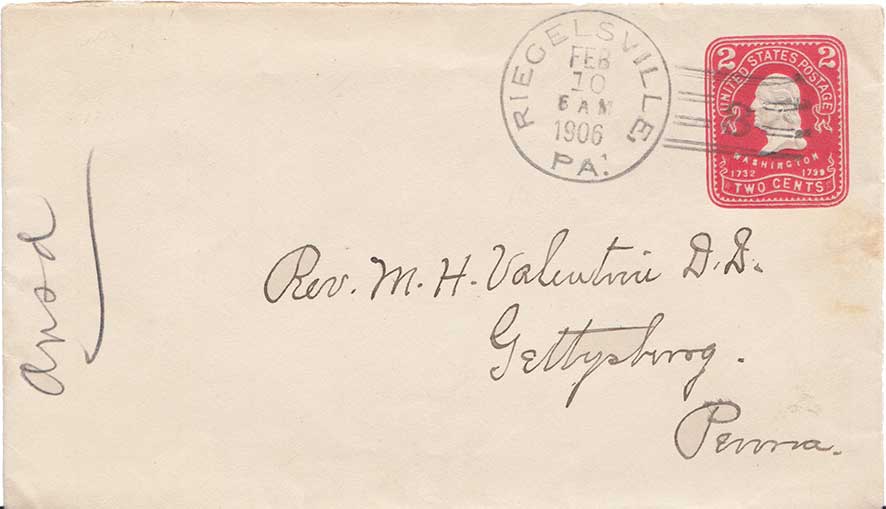 RIEGELSVILLE
FEB
10
6 AM
1906
PA.
2 2
UNITED STATES POSTAGE
WASHINGTON
1732 1799
TWO CENTS
ansd
Rev. M. H. Valentine D.D.
Gettysburg.
Penna.